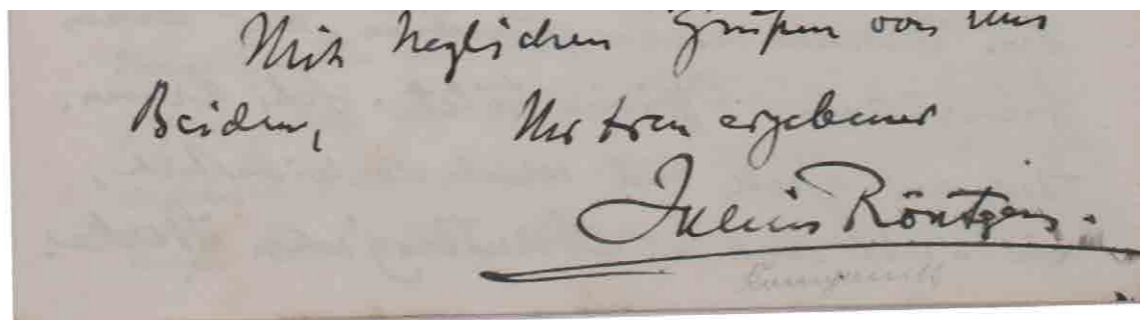 Mit herzlichen Grüßen von uns
Beiden, Ihr treu ergebener
Julius Röntgen.
Komponist